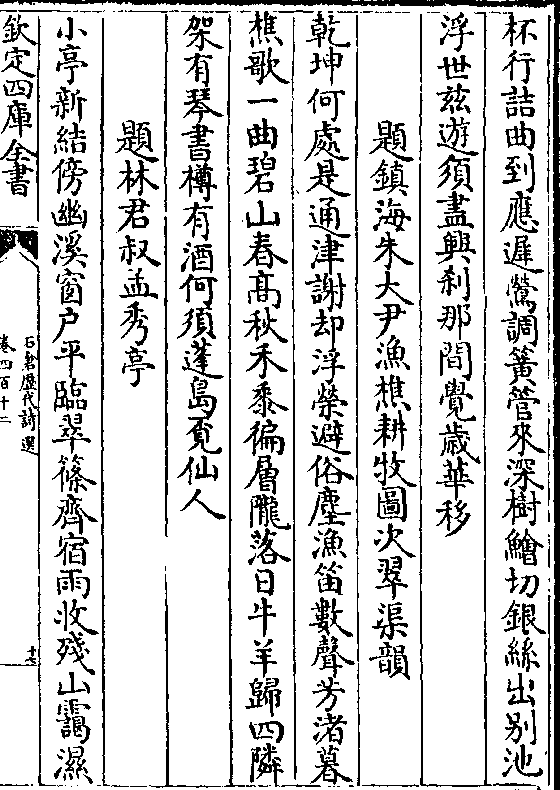 杯行詰曲到應遲鶯調簧管來深樹鱠切銀絲出别池
浮世兹遊須盡興刹那間覺歳華移
題鎮海朱大尹漁樵耕牧圖次翠渠韻
乾坤何處是通津謝却浮榮避俗塵漁笛數聲芳渚暮
樵歌一曲碧山春髙秋禾黍徧層隴落日牛羊歸四隣
架有琴書樽有酒何須蓬島覓仙人
題林君叔孟秀亭
小亭新結傍幽溪窗户平臨翠篠齊宿雨收殘山靄濕
欽定四庫全書
石倉歴代詩選
卷四百十二